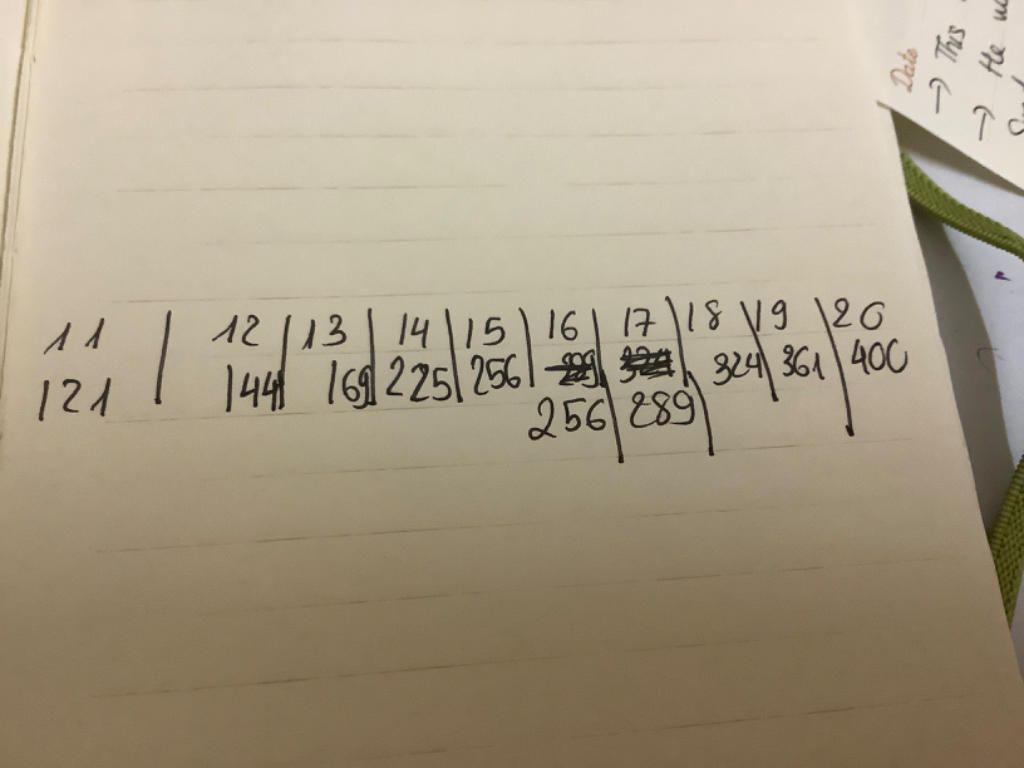 11 | 12 | 13 | 14 | 15 | 16 | 17 | 18 | 19 | 20
121 | 144 | 169 | 225 | 256 | 324 | 361 | 400
256 | 289
Date
→ This
→ He